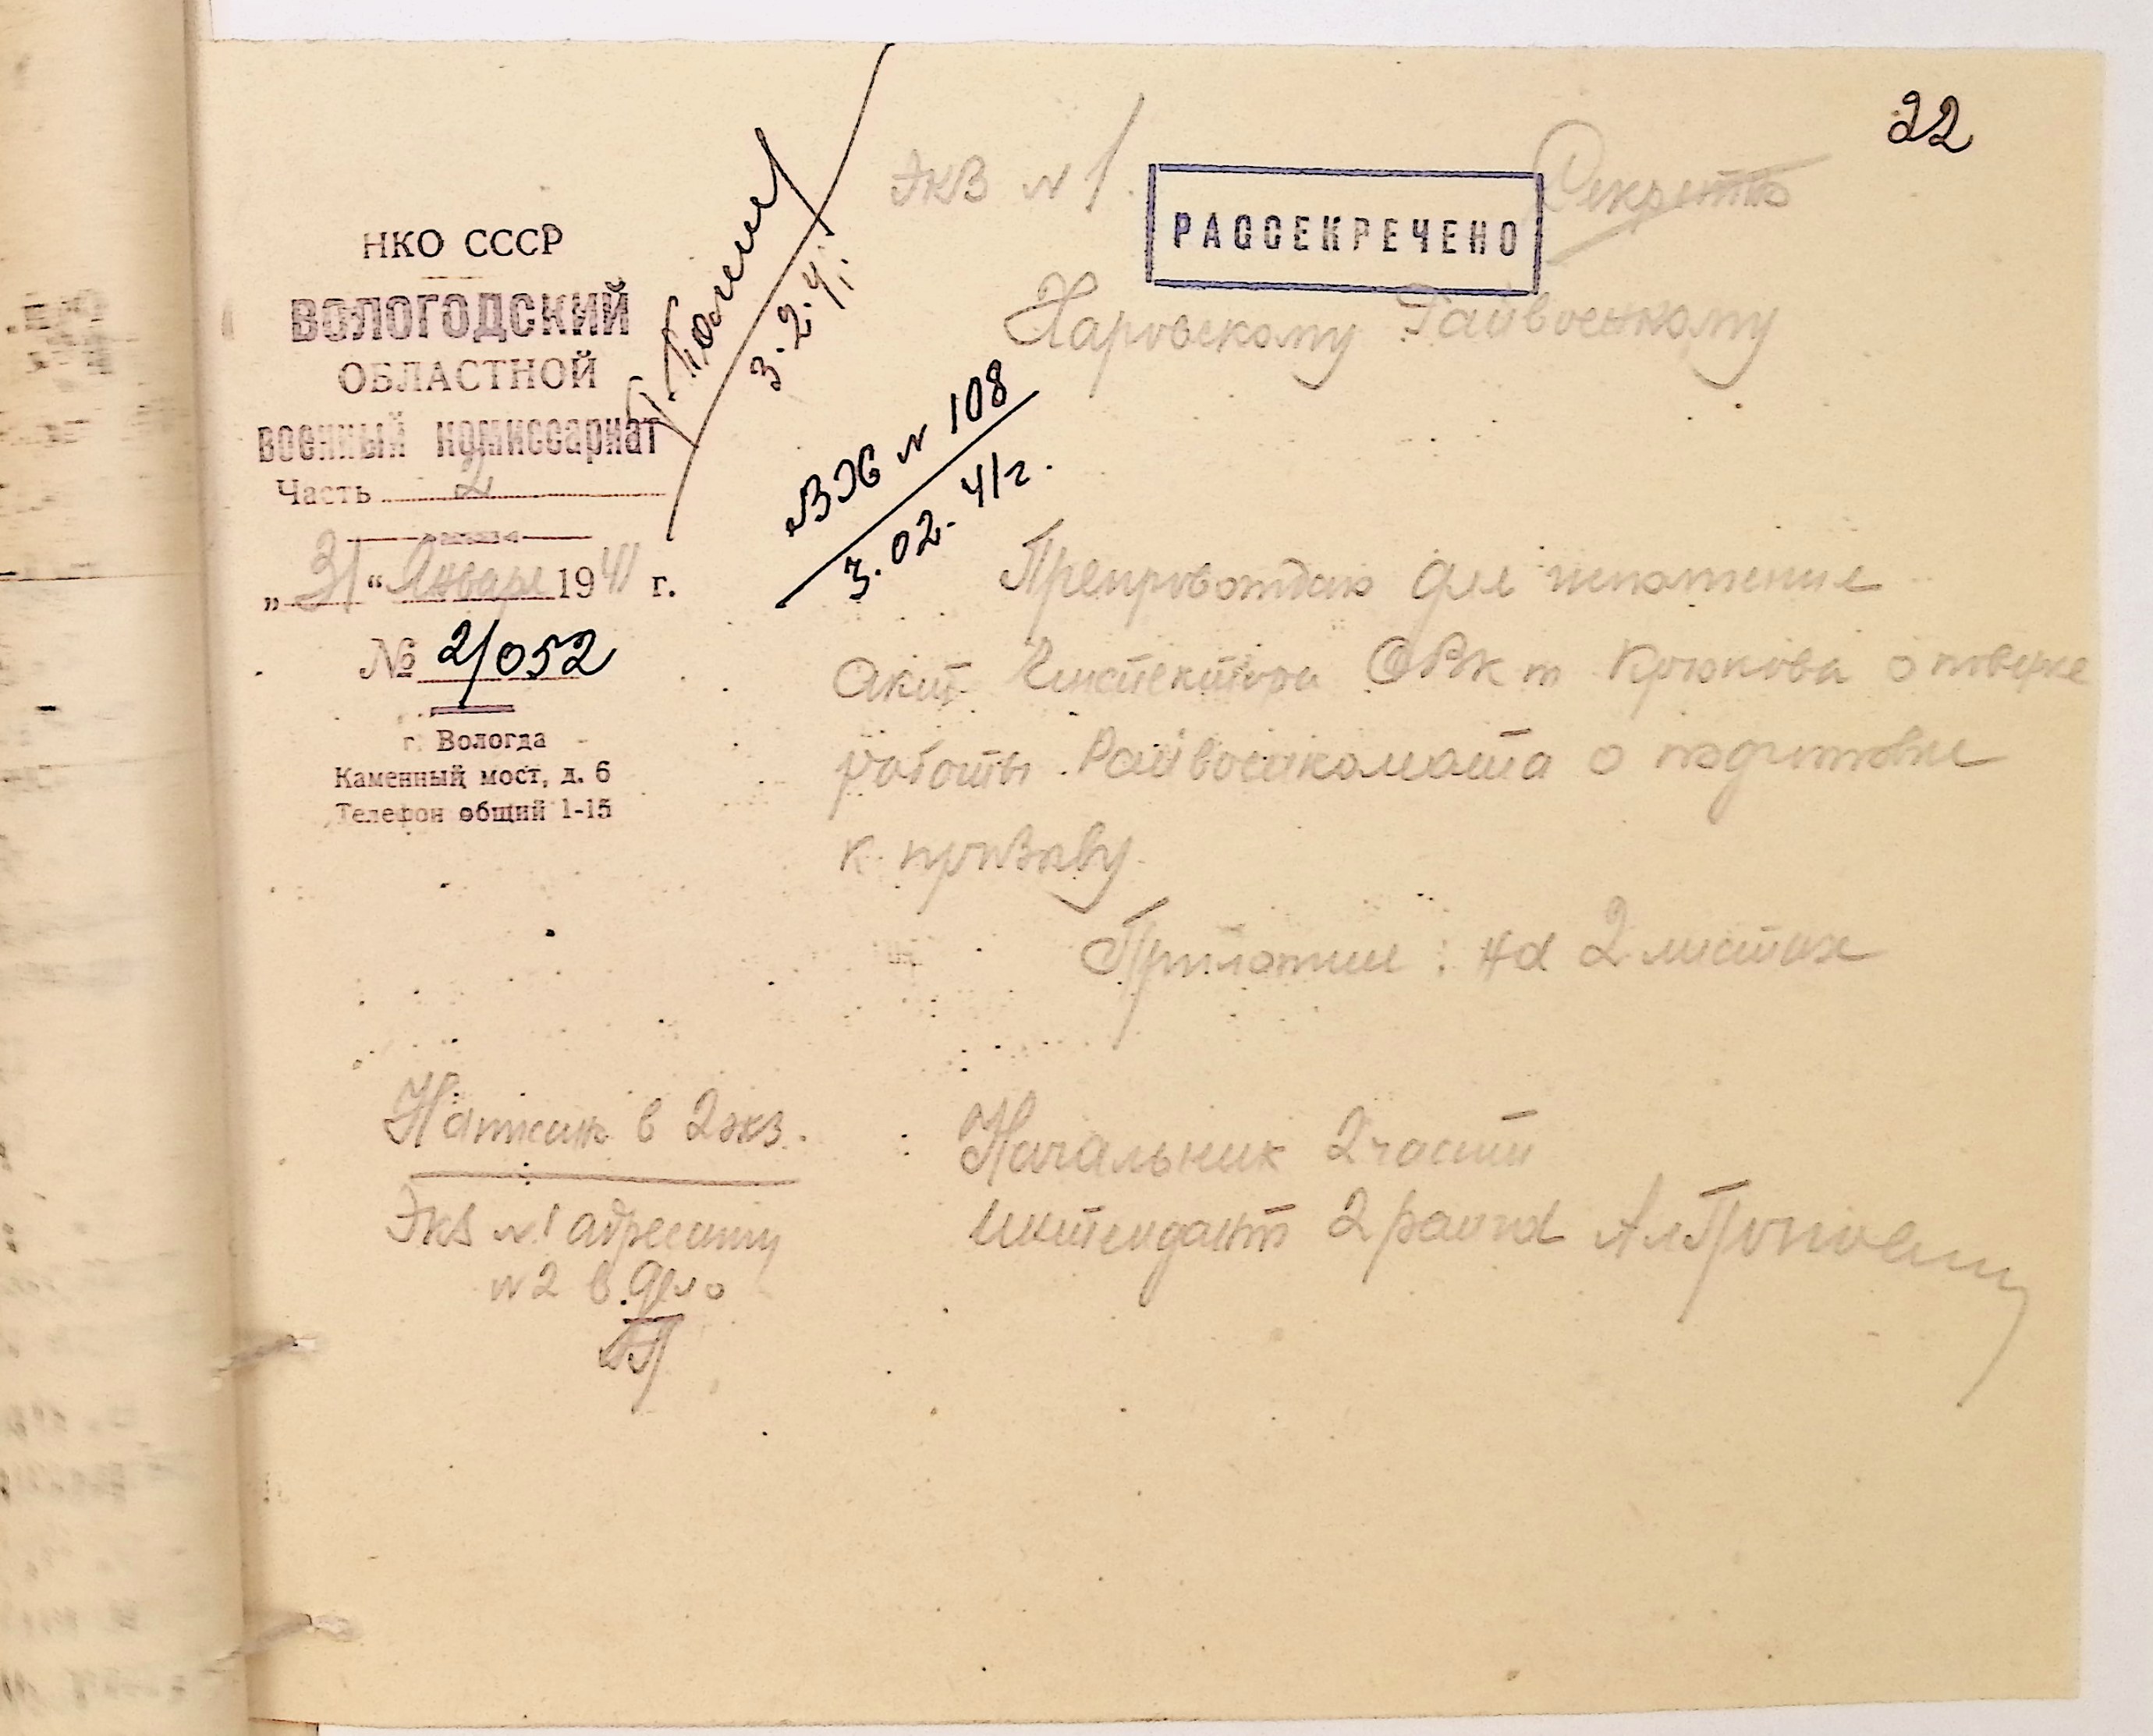 22
Экз №1.
Секретно
РАССЕКРЕЧЕНО
НКО СССР
ВОЛОГОДСКИЙ
ОБЛАСТНОЙ
ВОЕННЫЙ КОМИССАРИАТ
Часть 2
„31“ Января 1941 г.
№ 2/052
г. Вологда
Каменный мост, д. 6
Телефон общий 1-15
3.2.41.
Вх № 108
3.02.41г.
Харовскому Райвоенкому
Препровождаю для исполнения
акт Инспектора ОВК т Крюкова о поверке
работы Райвоенкомата о подготовки
к призыву.
Приложение: на 2 листах
Начальник 2 части
Интендант 2 ранга
Написан в 2 экз.
Экз №1 адресату
№2 в дело